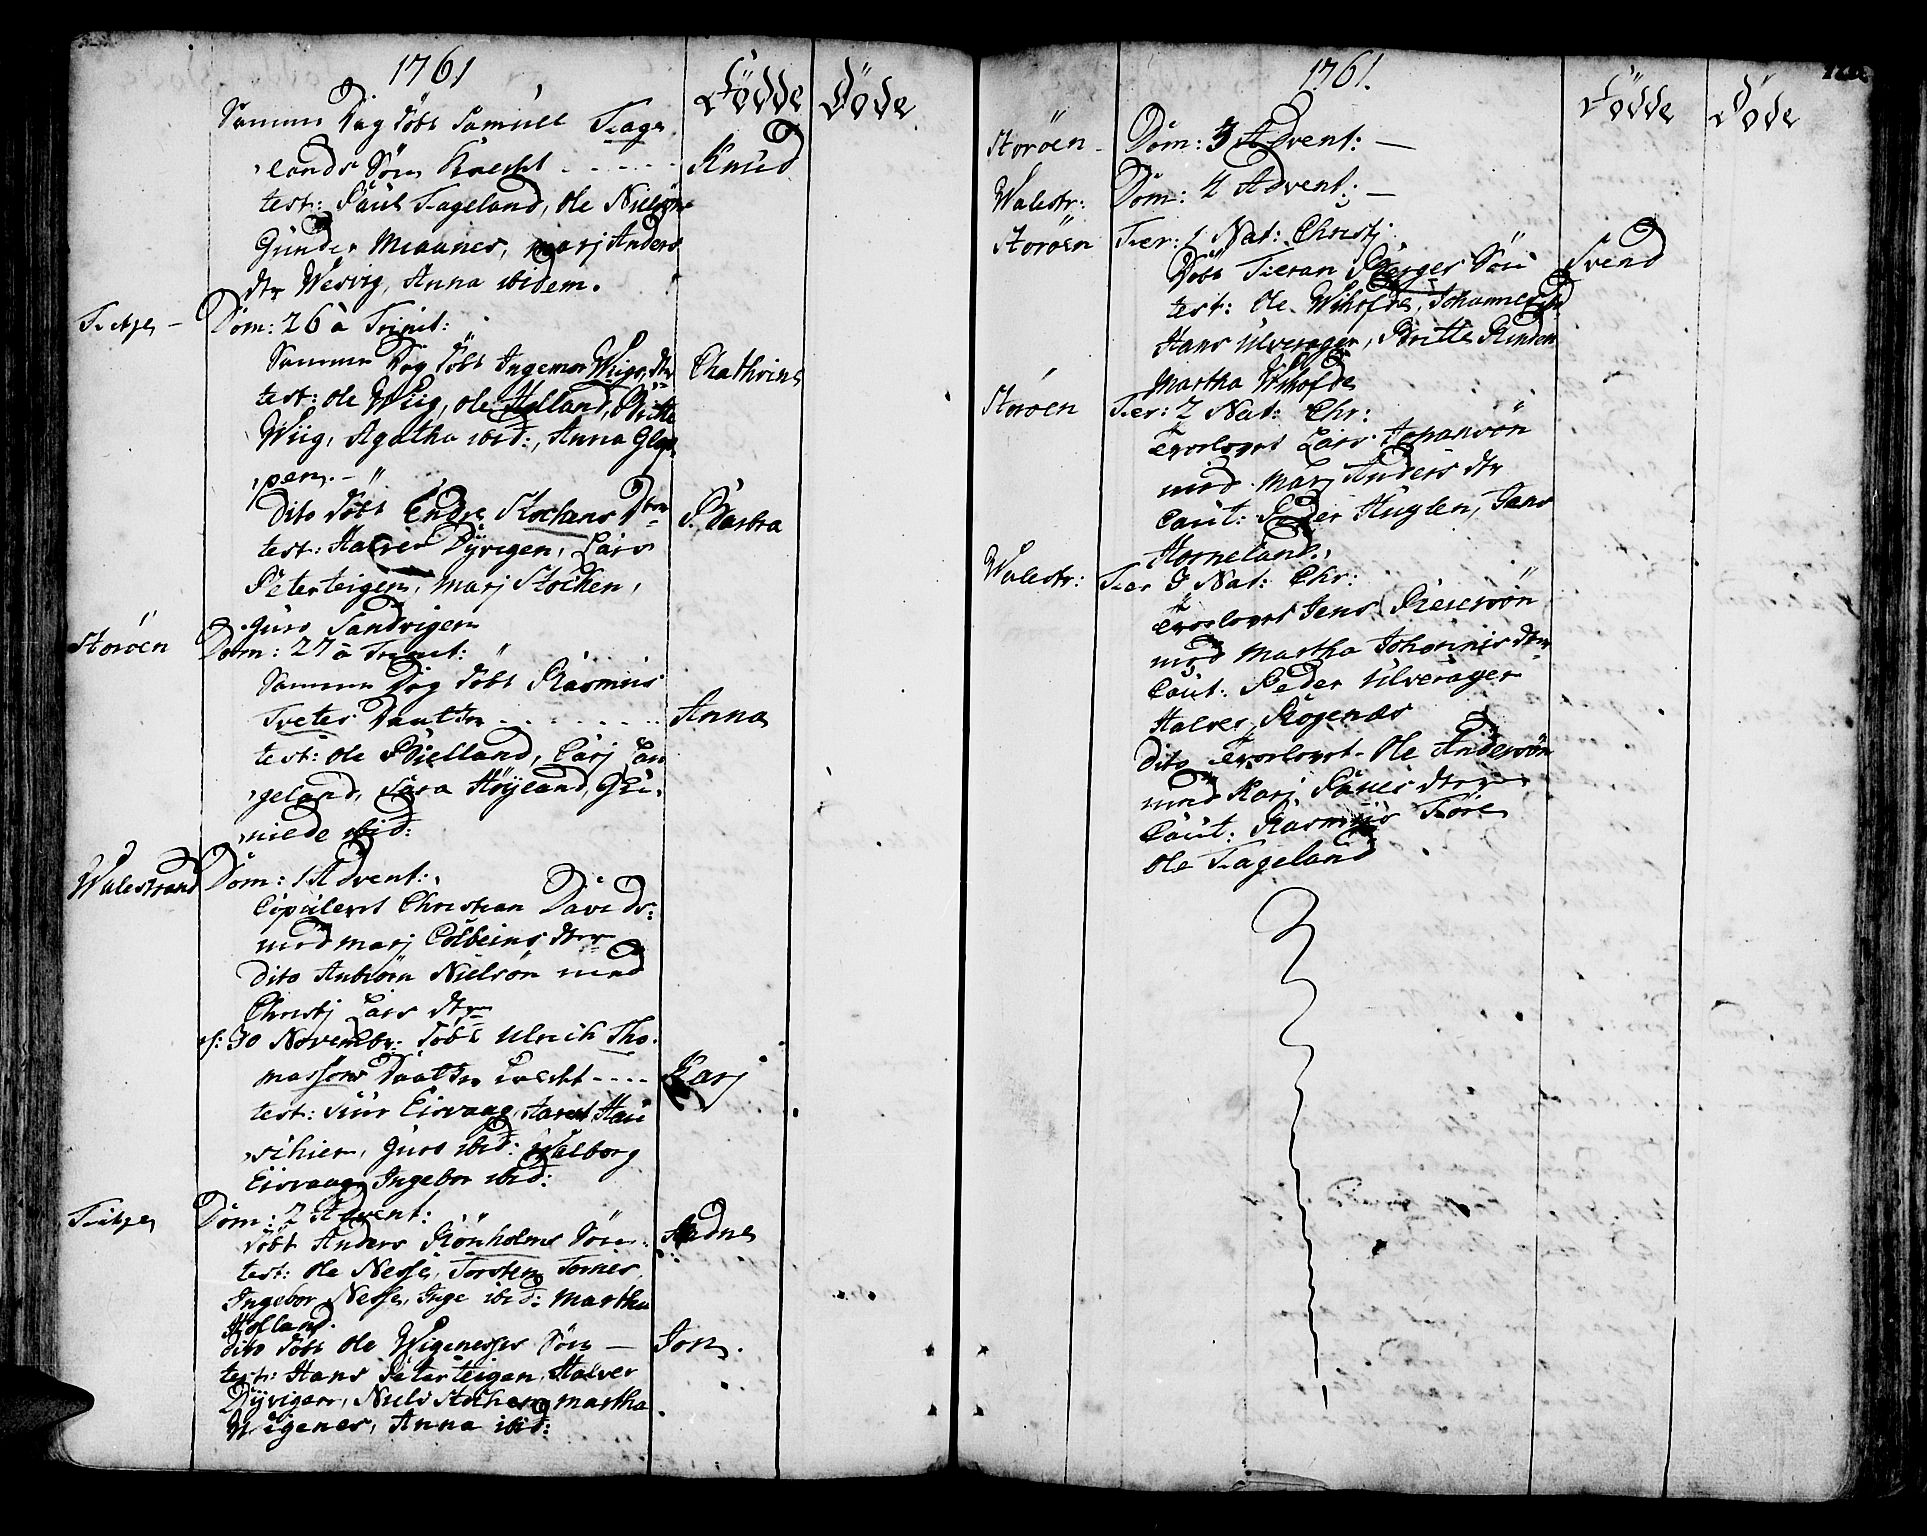 1761
Födde Döde
Samme Dag döbt Samuel Fage
lands Sön kaldt - - - - - Knud
test: Paul Fageland, Ole Nielsön
Gunder Meaanes, Marj Anders
dtr Wesvig, Anna ibidem.
Fitje - Dom: 26 à Trinit:
Samme Dag döbt Ingemor Wiigs dtr Chathrina
test: Ole Wiig, Ole Hølland, Britte
Wiig, Agatha ibid:, Anna Glop
pen. - "
Dito döbt Endre Stochens Dtr Barbra
test: Halver Dÿvigen, Lars
Peterteigen, Marj Stöcken,
Guro Sandvigen
Storöen Dom: 27 à Trinit:
Samme Dag döbt Rasmus
Tvetes Daatter - - - - - - - Anna
test: Ole Skielland, Carj Lan
geland, Sara Höÿland, Gu
nilde ibid:
Walestrand Dom: 1 Advent:
Copuleret Christian Davids:
med Marj Colbeins dtr
Dito Anbiörn Nielsön med
Christj Lars dtr
d: 30 Novembr: döbt Ulrich Tho
massons Daatter kaldt - - - - Karj
test: Siur Eisvaag, Aamet Hau
schier, Guro ibid: Walborg
Eisvaag, Ingebor ibid:
Fitje Dom: 2 Advent:
döbt Anders Rönholms Sön - Aadne
test: Ole Nesse, Torsten Tornes
Ingebor Nesse, Inge ibid: Martha
Hofland.
Dito döbt Ole Wigenesses Sön — Jon.
test: Hans Peterteigen, Halver
Dÿvigen, Niels Stochen, Martha
Wigenes, Anna ibid:
1761.
Födde Döde
Storöen - Dom: 3 Advent: —
Walestr: Dom: 4 Advent: —
Storöen Fer: 1 Nat: Christj
Döbt Tieran Berges Sön Svend
test: Ole Wihofde, Johannes ibid
Hans Ulverager, Britte Rinden
Martha Wihofde
Storöen Fer: 2 Nat: Chr:
Trolovet Lars Johansön
med Marj Anders dtr
Caut: Peder Huglen, Hans
Horneland.
Walestr: Fer 3 Nat: Chr:
Trolovet Jens Peersön
med Martha Johannis dtr
Caut: Peder Ulverager
Halver Rögenæs
Dito Trolovet Ole Andersön
med Karj Paules dtr
Caut: Rasmus Töre
Ole Fageland